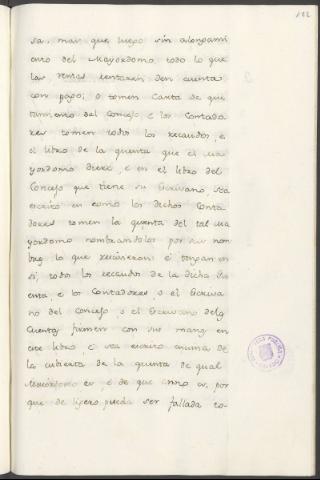 182
sa, mas que luego sin alongami
ento del Mayordomo todo lo que
las rentas rentaren den cuenta
con pago, o tomen Carta de qui
tamiento del Concejo, e los Contado
res tomen todos los recaudos, e
el libro de la quenta que el ma
yordomo diere, e en el libro del
Concejo que tiene su Escrivano, sea
escrito en como los dichos Conta
dores tomen la quenta del tal ma
yordomo nombrandolos por sus nom
bres lo que recivieron e tengan en
si, todos los recaudos de la dicha
enta, e los Contadores, o el Escriva
no del Concejo, o el Escrivano de
Cuentas firmen con sus manos en
este libro, e sea escrito encima de
la cubierta de la quenta de qual
Mayordomo es, e de que anno es, por
que de ligero pueda ser fallada co-